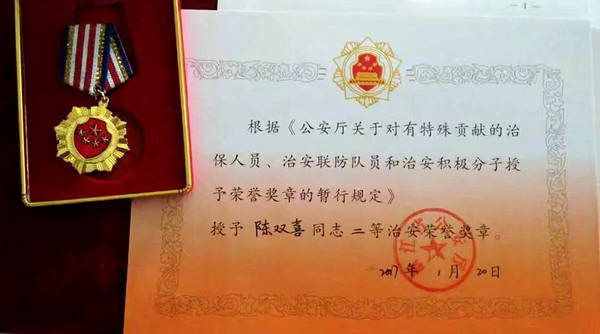 - 1 -
根据《公安厅关于对有特殊贡献的治
保人员、治安联防队员和治安积极分子授
予荣誉奖章的暂行规定》
授予 陈双喜 同志 二等治安荣誉奖章。
2017年 1月 20日